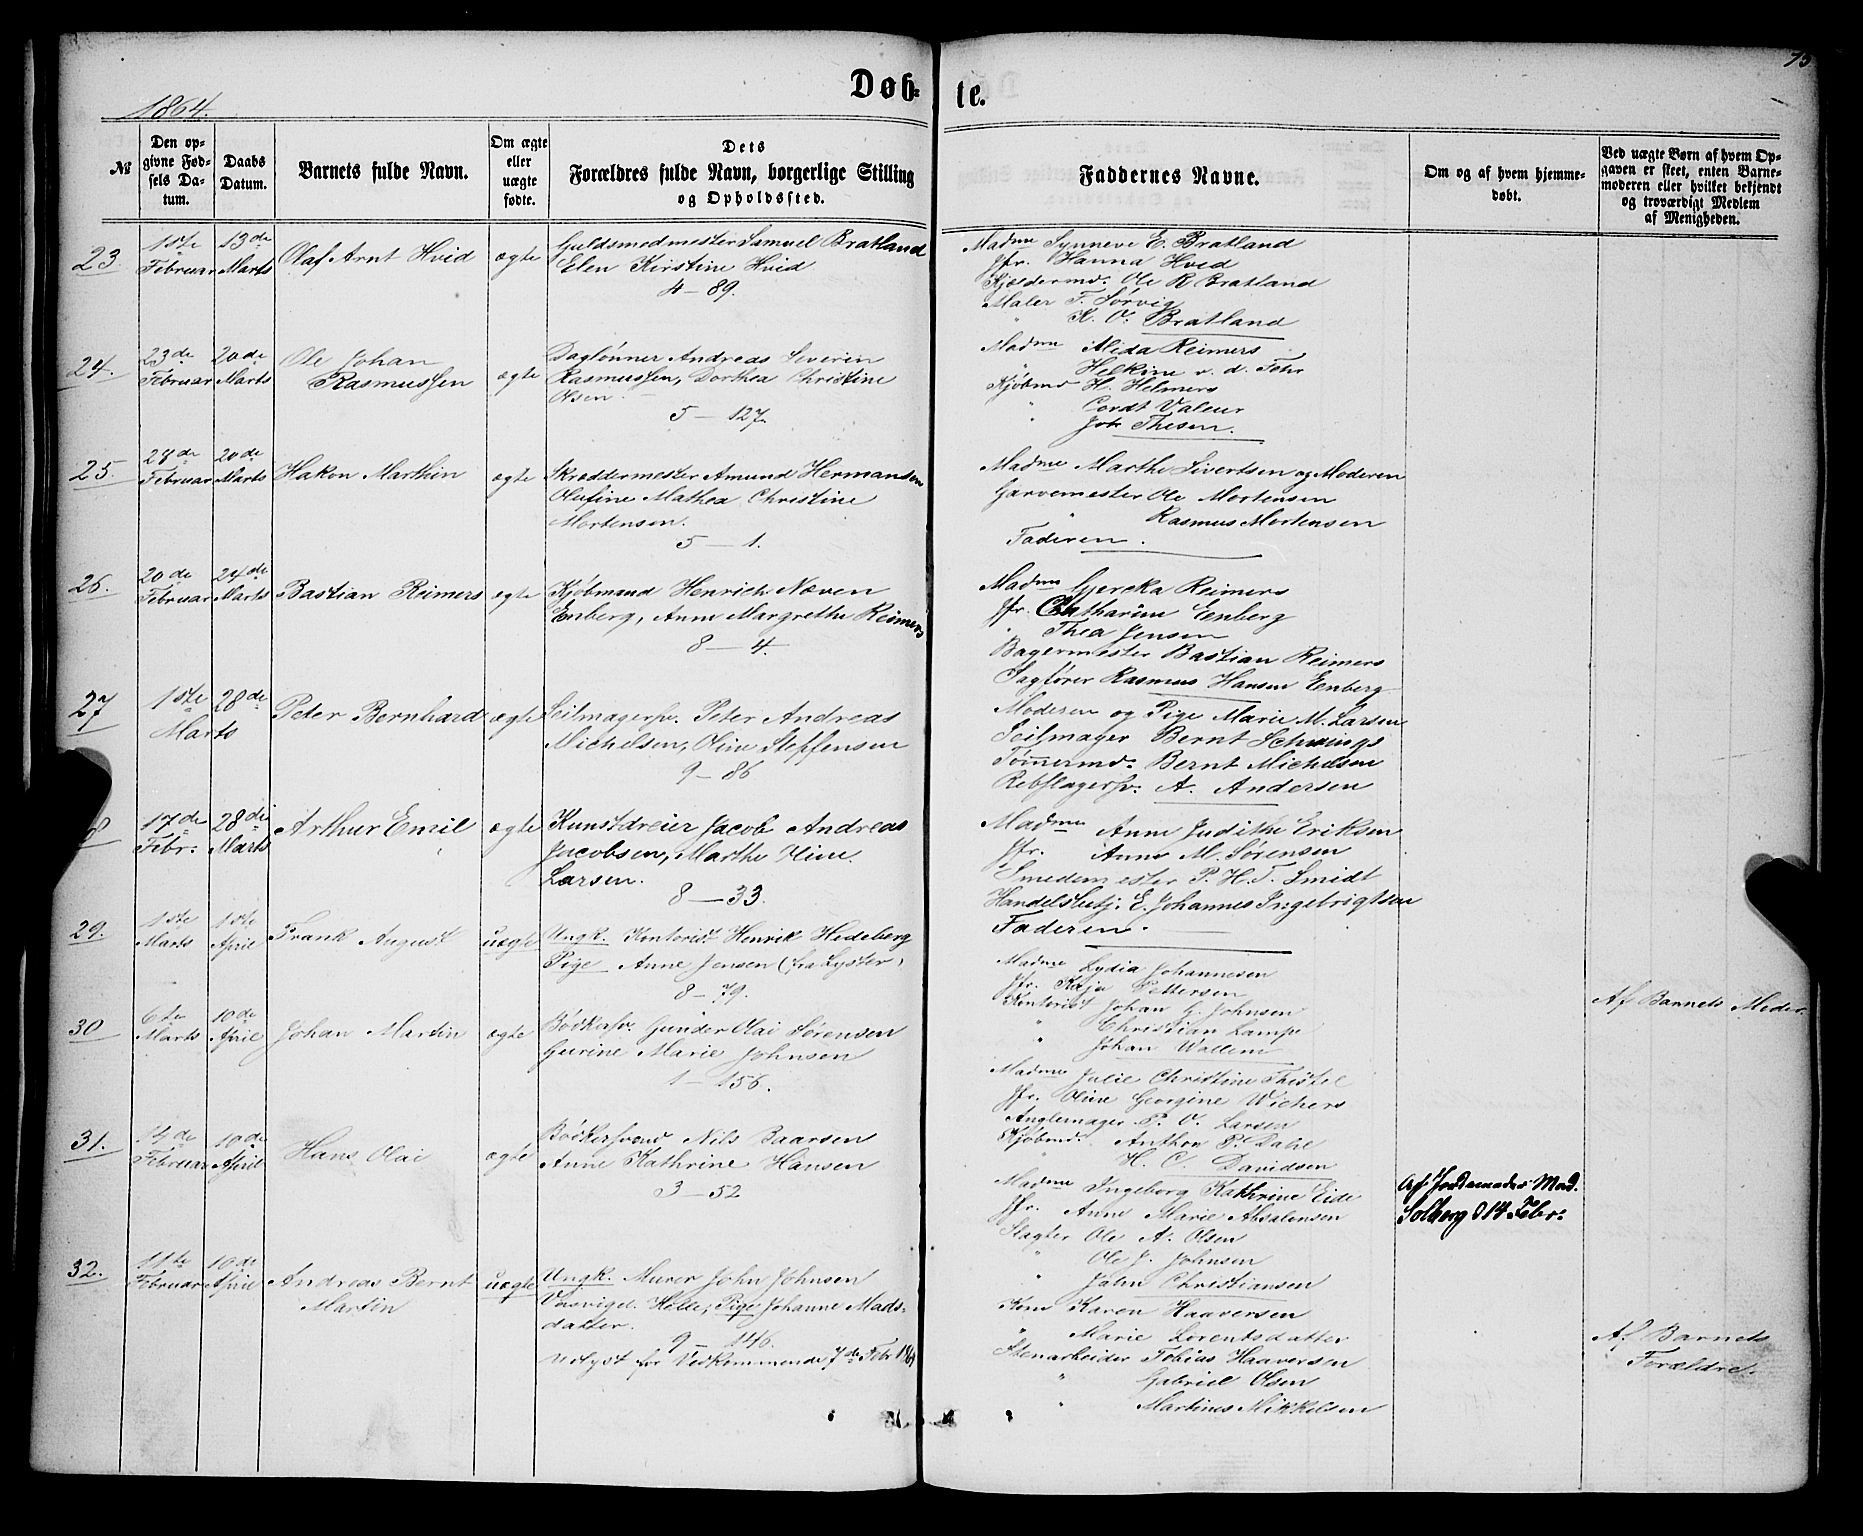 75
Døb-
te.
1864.
№
Den op-
givne Fød-
sels Da-
tum.
Daabs
Datum.
Barnets fulde Navn.
Om ægte
eller
uægte
fødte.
Dets
Forældres fulde Navn, borgerlige Stilling
og Opholdssted.
Faddernes Navne.
Om og af hvem hjemme-
døbt.
Ved uægte Børn af hvem Op-
gaven er skeet, enten Barne-
moderen eller hvilket bekjendt
og troværdigt Medlem
af Menigheden.
23
1ste
Februar
13de
Marts
Olaf Arnt Hvid
ægte
Guldsmedmester Samuel Bratland
Elen Kirstine Hvid
4 – 89.
Madme Synneve E. Bratland
Jfr. Hanna Hvid
Kjeldermd. Ole R Bratland
Maler F. Sørvig
" K. O. Bratland
24.
23de
Februar
20de
Marts
Ole Johan
Rasmussen
ægte
Dagtønner Andreas Severin
Rasmussen, Dorthea Christine
Olsen.
5 – 127.
Madme Alida Reimers
Helkine v. d. Fehr
Kjøbmd H. Helmers
" Cordt Valeur
" Joh Thesen.
25
28de
Februar
20de
Marts
Hakon Marthin
ægte
Skreddermester Amund Hermansen
Olufine Mathea Christine
Mortensen.
5 – 1.
Madme Marthe Sivertsen og Moderen
Garvemester Ole Mortensen
" Rasmus Mortensen
Faderen.
26.
20de
Februar
24de
Marts
Bastian Reimers
ægte
Kjøbmand Henrich Næven
Enberg, Anne Margrethe Reimers
8 – 4.
Madme Gjercka Reimers
Jfr. Chatharine Eenberg
" Thea Jensen
Bagermester Bastian Reimers
Sagfører Rasmus Hansen Eenberg
27
1ste
Marts
28de
Peter Bernhard
ægte
Seilmagersv. Peter Andreas
Michelsen, Oline Steffensen
9 – 86
Moderen og Pige Marie M. Larsen
Seilmager Bernt Schwings
Tømmermd. Bernt Michelsen
Rebslagersv. A. Andersen
8
17de
Febr.
28de
Marts
Arthur Emil
ægte
Kunstdreier Jacob Andreas
Jacobsen, Marthe Oline
Larsen.
8 – 33.
Madme Anne Judithe Eriksen
Jfr. Anne M. Sørensen
Smedemester P. H. T. Smidt
Handelsbetj. E. Johannes Ingebrigtsen
Faderen.
29.
1ste
Marts
1ste
April
Frank August
uægte
Ungk. Kontorist Henrik Hedeberg
Pige Anne Jensen (fra Lyster.
8 – 79.
Madme Lydia Johannesen
Jfr. Kaja Pettersen
Kontorist Johan G. Johnsen
" Christian Lampe
" Johan Wallem
Af Barnets Moder.
30
6te
Marts
10de
April
Johan Martin
ægte
Bødkersv. Gunder Olai Sørensen
Gurine Marie Johnsen
1 – 156.
Madme Julie Christine Thistel
Jfr. Oline Georgine Wichers
Anglemager P. O. Larsen
Kjøbmd. Anthon P. Dahl
H. C. Davidsen
31.
14de
Februar
10de
April
Hans Olai
ægte
Bødkersvend Nils Baarsen
Anne Kathrine Hansen
3 – 52
Madme Ingeborg Kathrine Eide
Jfr. Anne Marie Absalonsen
Slagter Ole A. Olsen
" Ole J. Johnsen
" Jahn Christiansen
Af Jordemoder Mad.
Solberg d 14 Febr.
32.
11te
Februar
10de
April
Andreas Bernt
Martin
uægte
Ungk. Murer John Johnsen
Helle, Pige Johanne Mads-
datter.
9 – 146.
Udlyst for Vedkommende 7de Febr 1864
Kone Karen Haaversen
" Marie Lorentsdatter
Stenarbeider Tobias Haaversen
" Gabriel Olsen
" Martines Mikkelsen
Af Barnets
Forældre.